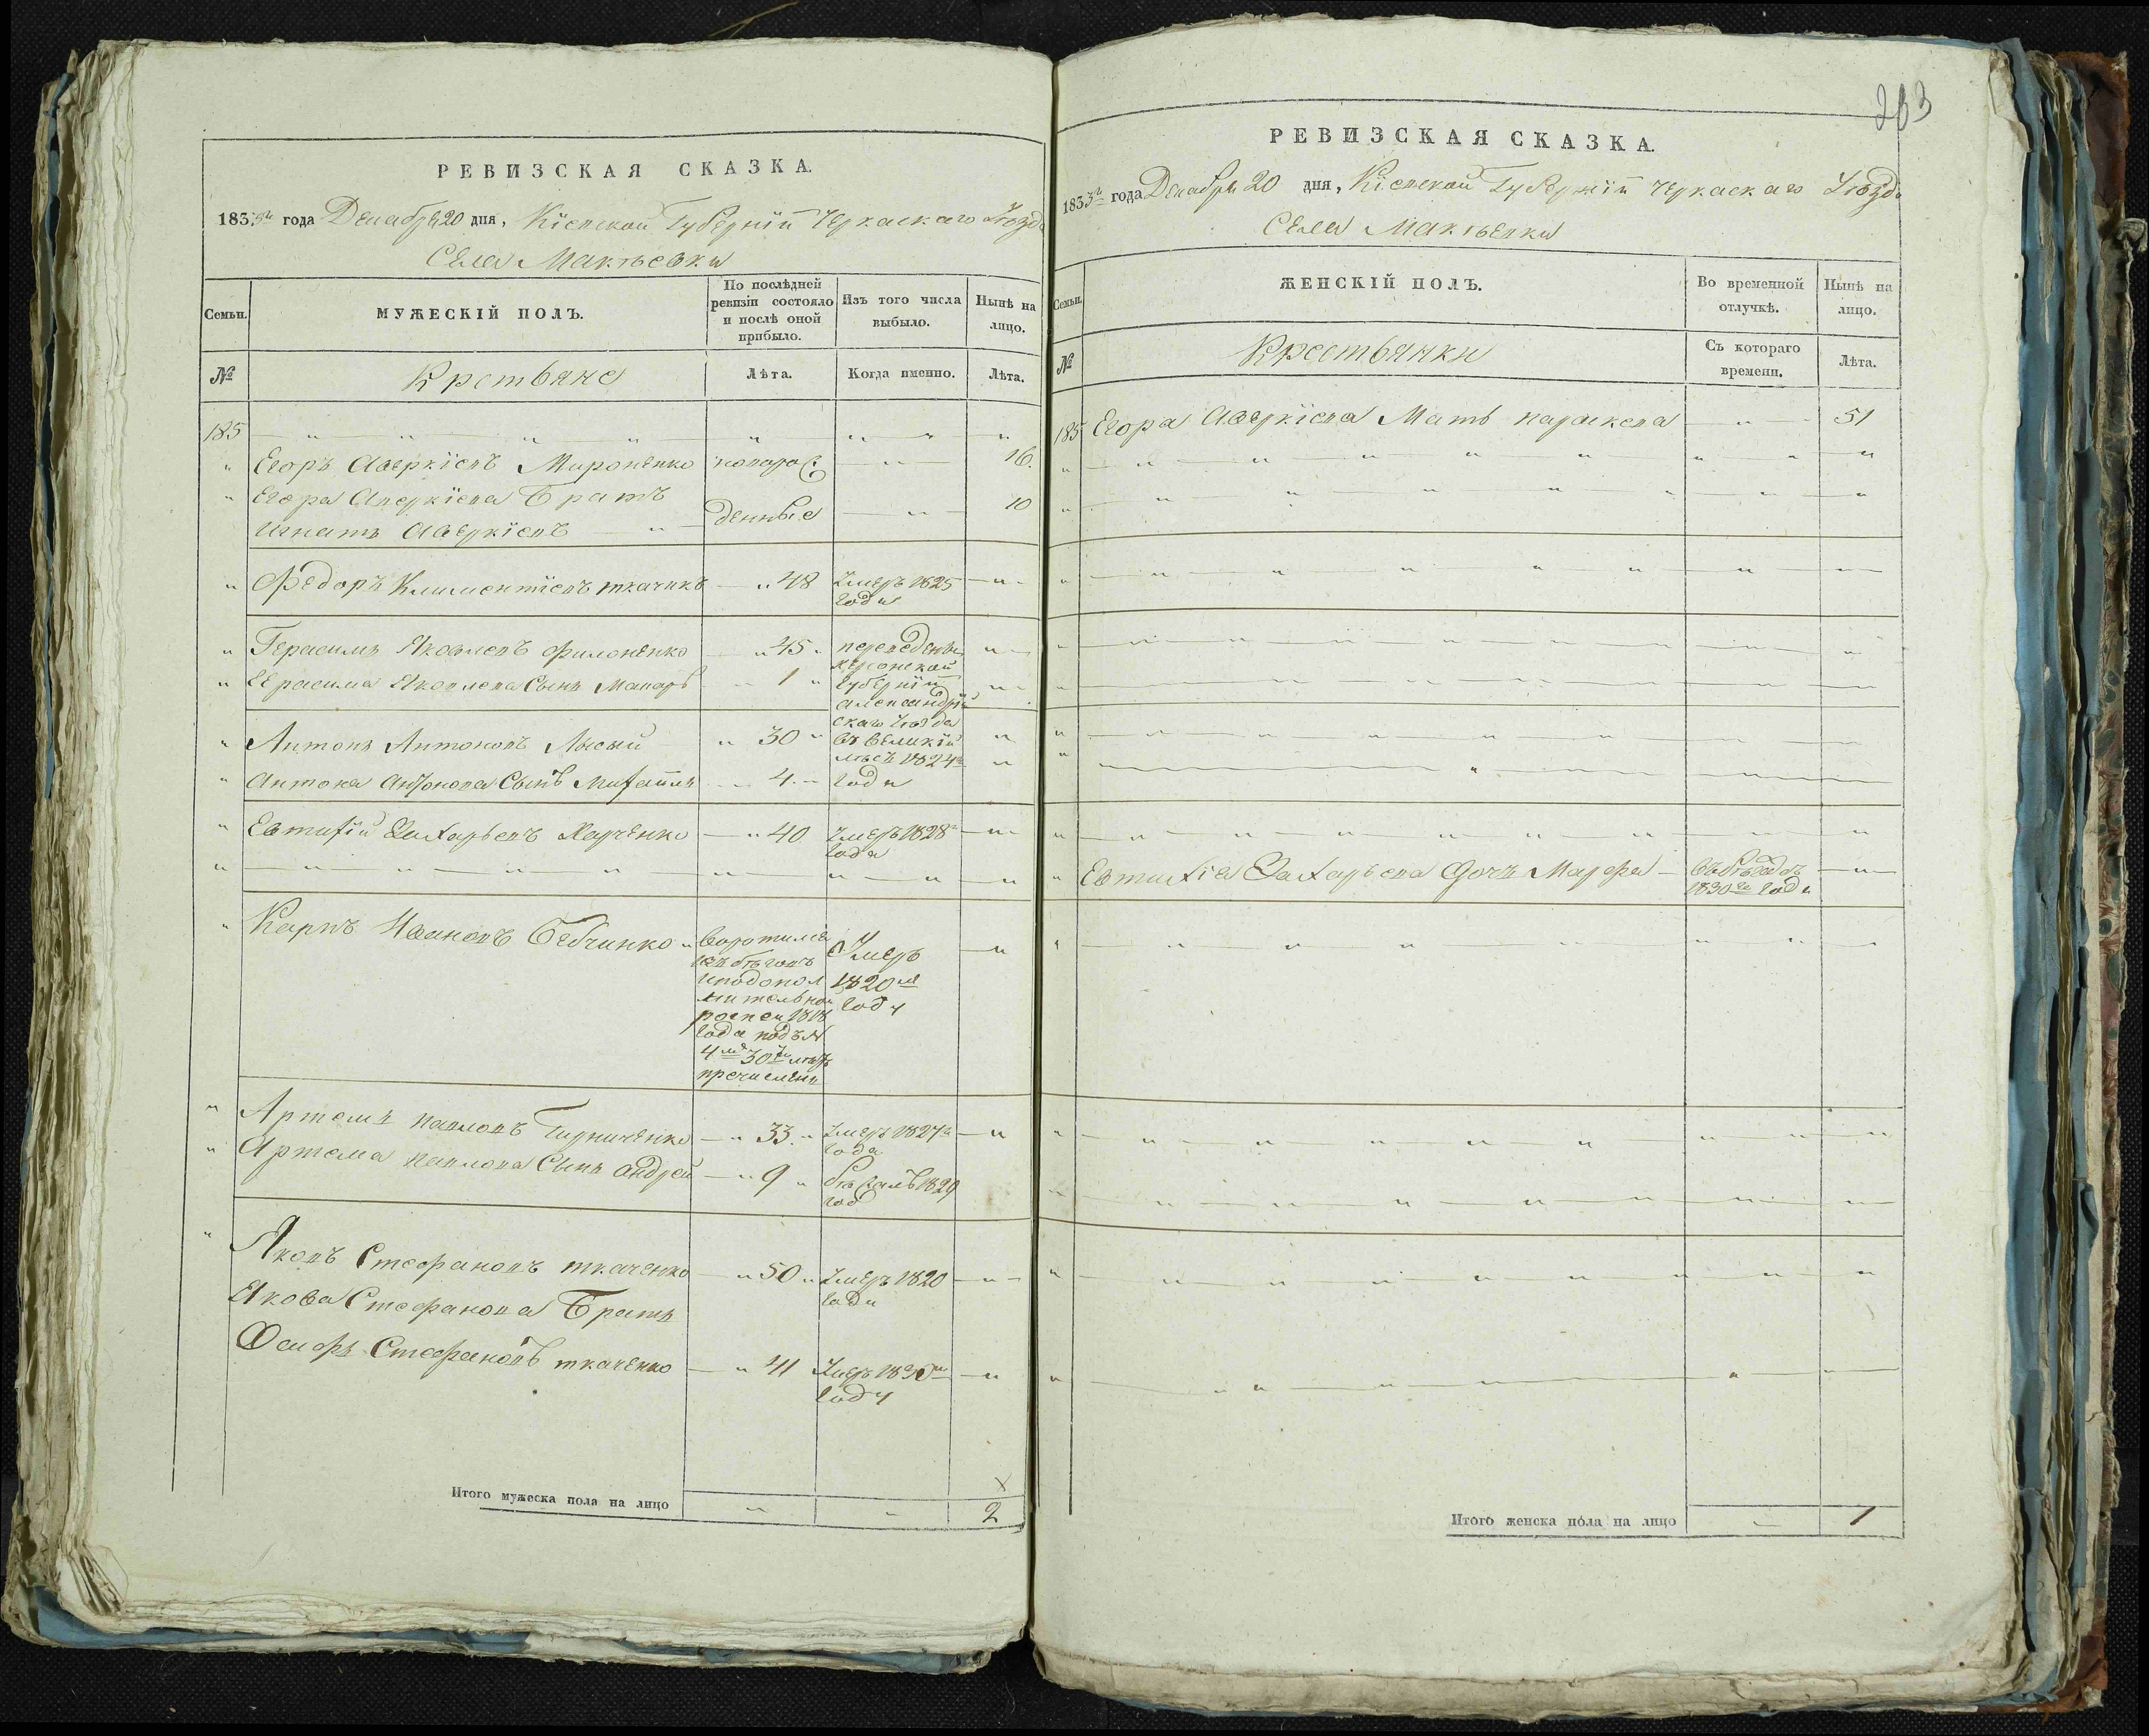 РЕВИЗСКАЯ СКАЗКА.
1833го года Декабря 20 дня, Кіевской Губерніи Черкаскаго Уезда
Села Макѣевки
Семьи.
МУЖЕСКІЙ ПОЛЪ.
По послѣдней ревизіи состояло и послѣ оной прибыло.
Изъ того числа выбыло.
Нынѣ на лицо.
№
Крстьяне
Лѣта.
Когда именно.
Лѣта.
185
" Егоръ Аверкіевъ Мироненко новорож 16.
" Егора Аверкіева Братъ
Игнатъ Аверкіевъ денные 10
" Федоръ Климентіевъ ткачикъ 48 Умеръ 1825 года
" Герасимъ Яковлевъ Филоненко 45 переведены
Херсонской
" Герасима Яковлева Сынъ Макаръ 1 Губерніи
Александрій
скаго Уезда
" Антонъ Антоновъ Лысый 30 въ великій
1824
" Антона Антонова Сынъ Михайла 4 года
" Евтихій Захарьевъ Харченко 40 Умеръ 1828 года
" Карпъ Ивановъ Бебчинко
Воротился
изъ бѣговъ
иподопол
нительной
1818
года подъ №
4мъ 30
пречисленъ
Умеръ
1820го
году
" Артемъ Павловъ 33 Умеръ 1827 года
" Артема Павлова Сынъ Андрей 9 бѣжалъ 1829 год
" Яковъ Стефановъ ткаченко 50 Умеръ 1820 года
Якова Стефанова Братъ
Стефановъ ткаченко 41 Умеръ году
Итого мужеска пола на лицо 2
263
РЕВИЗСКАЯ СКАЗКА.
1833го года Декабря 20 дня, Кіевской Губерніи Черкаскаго Уезда
Села Макѣевки
Семьи.
ЖЕНСКІЙ ПОЛЪ.
Во временной отлучкѣ.
Нынѣ на лицо.
№
Крестьянки
Съ котораго времени.
Лѣта.
185 Егора Аверкіева Мать параскева 51
" Евтихія Захарьева Дочь Марфа въ бѣгахъ 1830го года
Итого женска пола на лицо 1